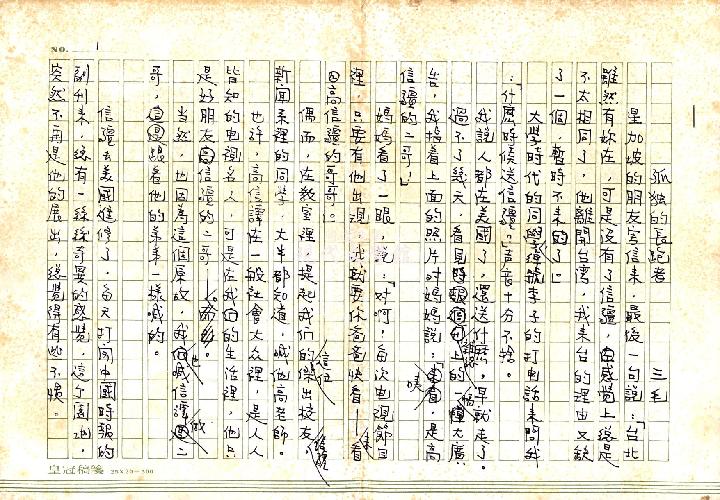 NO. 1
孤獨的長跑者　三毛
星加坡的朋友寫信來，最後一句說：「台北
雖然有妳在，可是沒有了信疆，在感覺上總是
不太相同了，他離開台灣，我來台的理由又缺
了一個，暫時不來了。」
大學時代的同學綽號李子的打電話來問我
：「什麼時候送信疆？」聲音十分不捨。
我說人都在美國了，還送什麼，早就走了。
過不了幾天，看見上的一幅大廣
告，我指着上面的照片對媽媽說：「看，是高
信疆的二哥！」
媽媽看了一眼，說：「對啊！每次電視節目
裡，只要有他出現，我就要你爸爸快來看——看
高信疆的哥哥。」
偶而，在教室裡，提起我們的這位傑出校友，
新聞系裡的同學，大半都知道，喊他高老師。
也許，高信譚在一般社會大眾裡，是人人
皆知的電視名人，可是在我的生活裡，他只
是好朋友信疆的二哥——
當然，也因為這個原故，我也喊信譚二
哥，跟着他的弟弟一樣喊的。
信疆去美國進修了，每天打開中國時報的
副刊來，總有一絲絲奇異的感覺，這片園地，
突然不再是他的展出，總覺得有些不慣。
皇冠稿箋 25×20=500